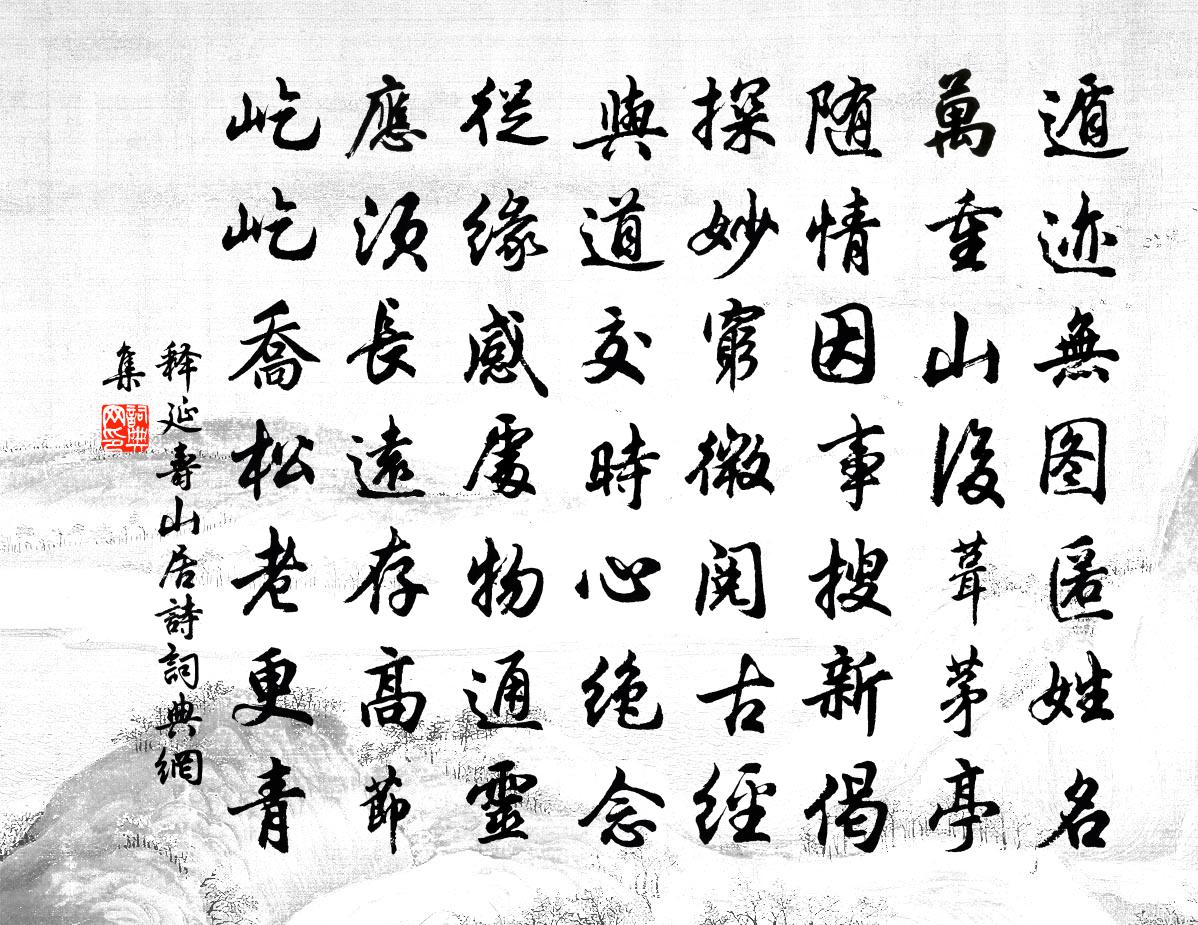 遁迹無图匿姓名
萬重山後葺茅亭
随情因事搜新偈
探妙窮微閱古經
與道交時心絶念
從緣感處物通靈
應須長遠存高節
屹屹喬松老更青
释延壽山居詩詞典網
集
詞典网印